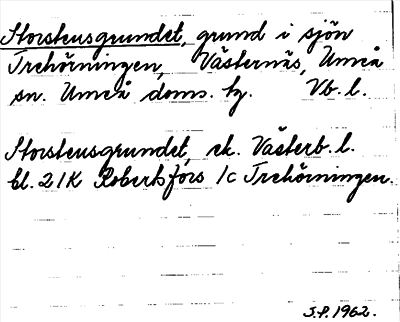 Storstensgrundet, grund i sjön
Trehörningen, Västernäs, Umeå
sn. Umeå doms. tg. Vb. l.
Storstensgrundet, ek. Västerb. l.
bl. 21K Robertsfors 1c Trehörningen.
S.P. 1962.